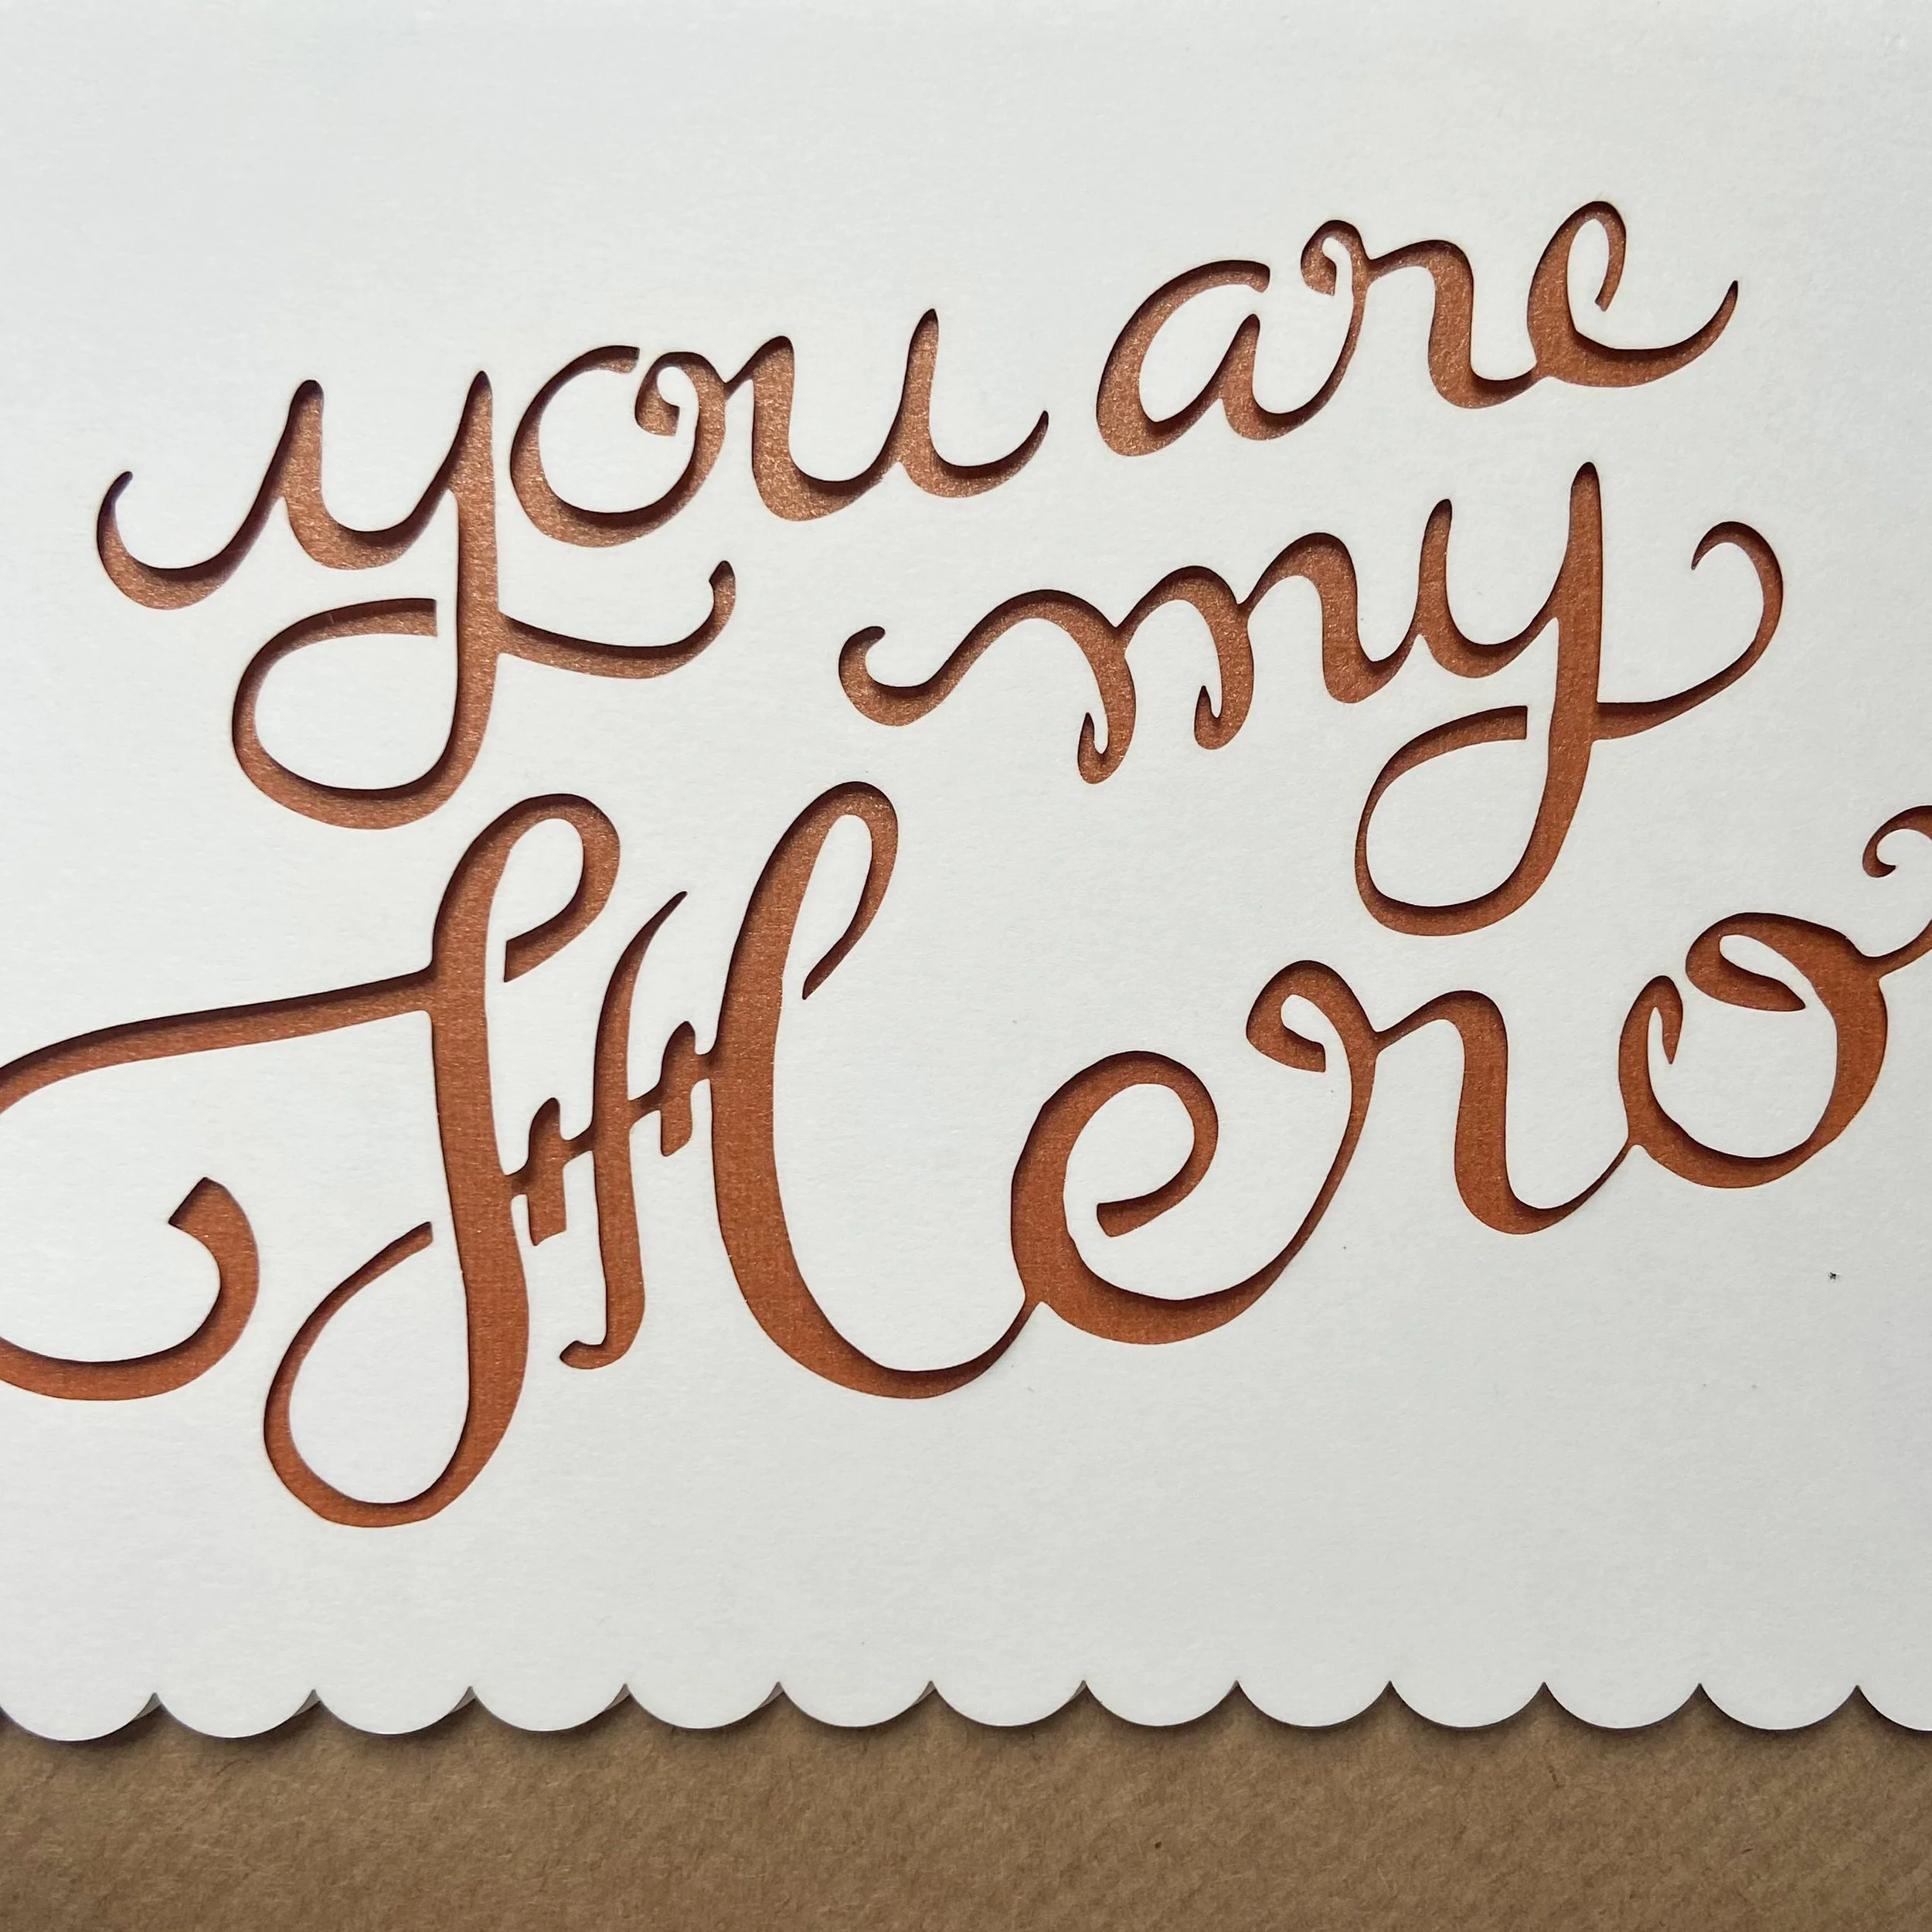 you are
my
Hero